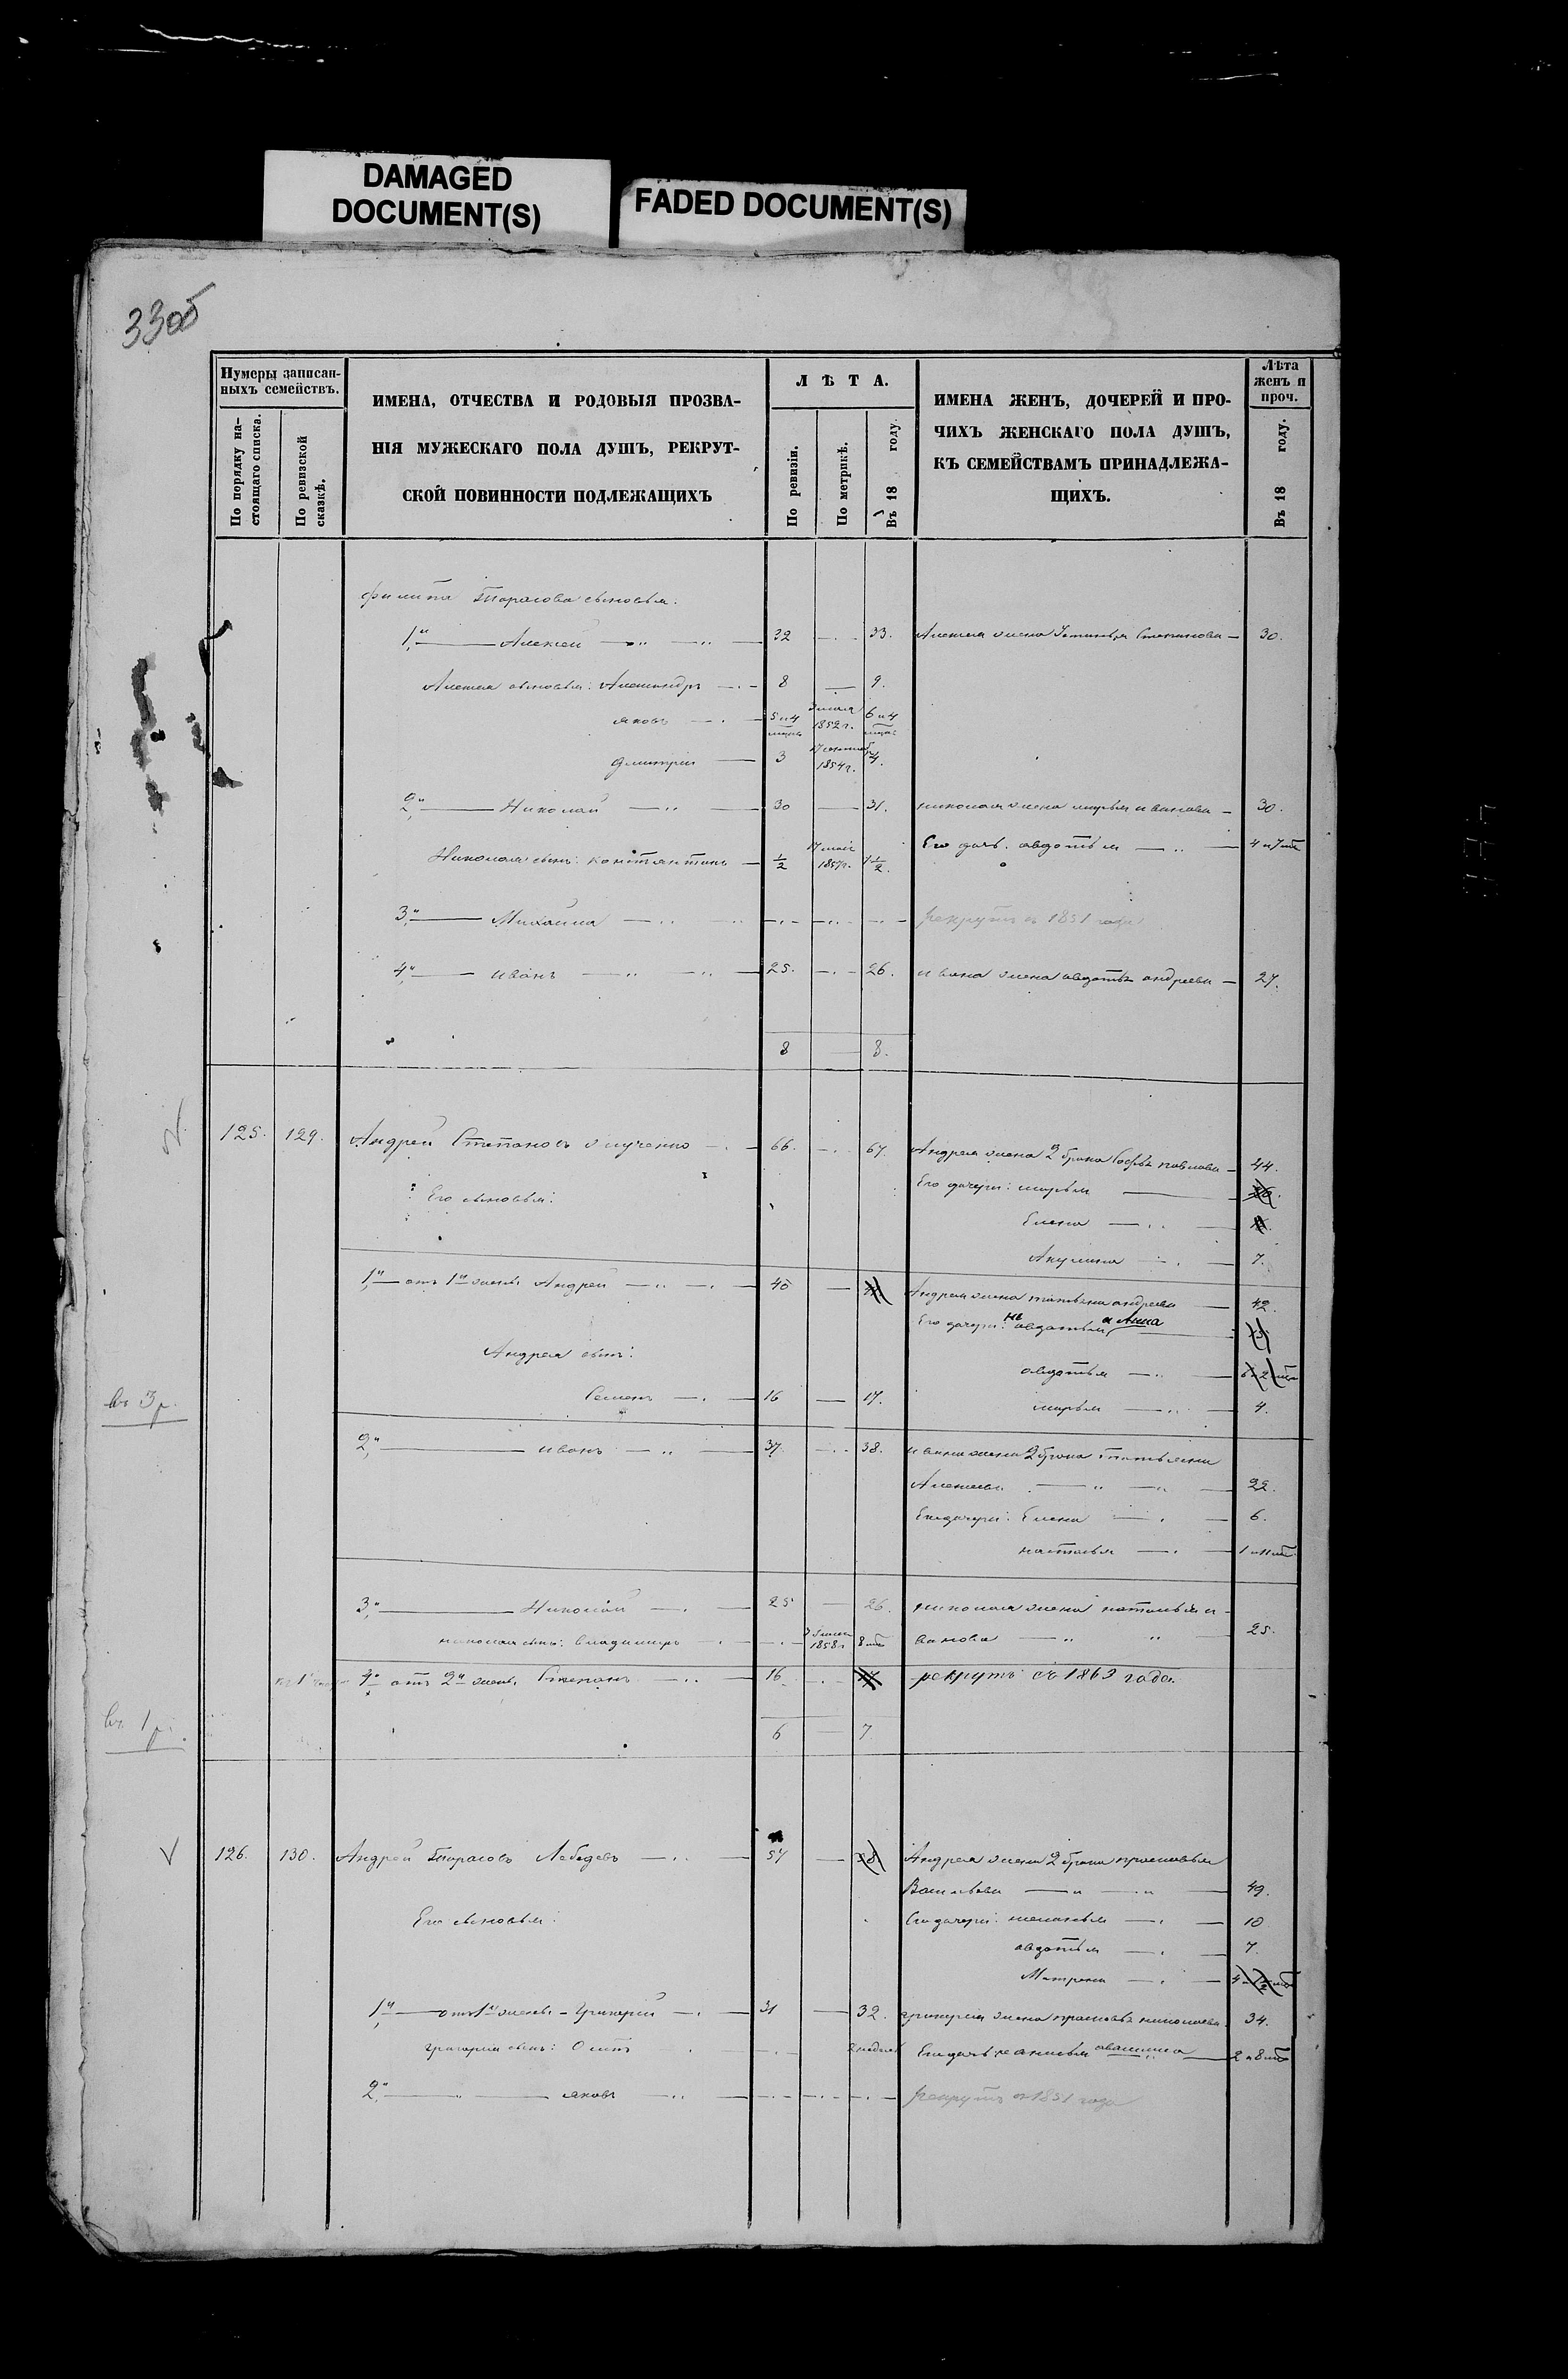 DAMAGED
DOCUMENT(S)
FADED DOCUMENT(S)
33об
Нумеры записан-
ныхъ семействъ.
По порядку на-
стоящаго списка.
По ревизской
сказкѣ.
ИМЕНА, ОТЧЕСТВА И РОДОВЫЯ ПРОЗВА-
НІЯ МУЖЕСКАГО ПОЛА ДУШЪ, РЕКРУТ-
СКОЙ ПОВИННОСТИ ПОДЛЕЖАЩИХЪ
ЛѢТА.
По ревизіи.
По метрикѣ.
Въ 18 году.
ИМЕНА ЖЕНЪ, ДОЧЕРЕЙ И ПРО-
ЧИХЪ ЖЕНСКАГО ПОЛА ДУШЪ,
КЪ СЕМЕЙСТВАМЪ ПРИНАДЛЕЖА-
ЩИХЪ.
Лѣта
женъ и
проч.
Въ 18 году.
Филипа Тарасова сыновья:
1й — Алексей — 32 — 33. Алексея жена Степанова — 30.
Алексея сыновья: Александръ — 8 — 9.
яковъ — 5 и 4 мецъ 1852 г. 6 и 4 меца:
дмитрій — 3 1854 г. 4.
2й — Николай — 30 — 31. николая жена марья иванова — 30.
Его дочь: авдотья — 4 и 7 ме
Николая сынъ: константинъ — 1/2 17 1857 г. 1 1/2.
3й — Михаила — рекрутъ съ 1851 года
4й — иванъ — 25. — 26. ивана жена авдотья андреева — 27.
8 — 8.
125. 129. Андрей Степановъ — 66. — 67. Андрея жена 2 брака Софья павлова — 44.
Его сыновья: Его дочери: марья
Елена
Акулина — 7.
1й — отъ 1й жены Андрей — 40 — Андрея жена татьяна андреева — 42.
Его дочери: авдотья и Анна
Андрея сынъ:
авдотья — 6 и 2 ме
въ 3 р. Семенъ — 16 — 17. марья — 4.
2й — иванъ — 37. — 38. ивана жена 2 брака татьяна
Алексеева — 22.
Его дочери: Елена — 6.
настасья — 1 и 11 ме.
3й — Николай — 25 — 26. николая жена наталья и-
николая сынъ: владимиръ — 1858 г 8 ме ванова — 25.
4й отъ 2й жены Степанъ — 16 — рекрутъ съ 1863 года.
въ 1 р. 6 — 7
126. 130. Андрей Тарасовъ Лебедевъ — 57 — 58 Андрея жена 2 брака прасковья
Васильева — 49.
Его сыновья: Его дочери: — 10
авдотья — 7.
Матрена
1й — отъ 1й жены — Григорій — 31 — 32. григорія жена прасковья николаева — 34.
григорія сынъ: Осипъ — Его дочь — 2 и 8 ме
2й — яковъ — рекрутъ съ 1851 года